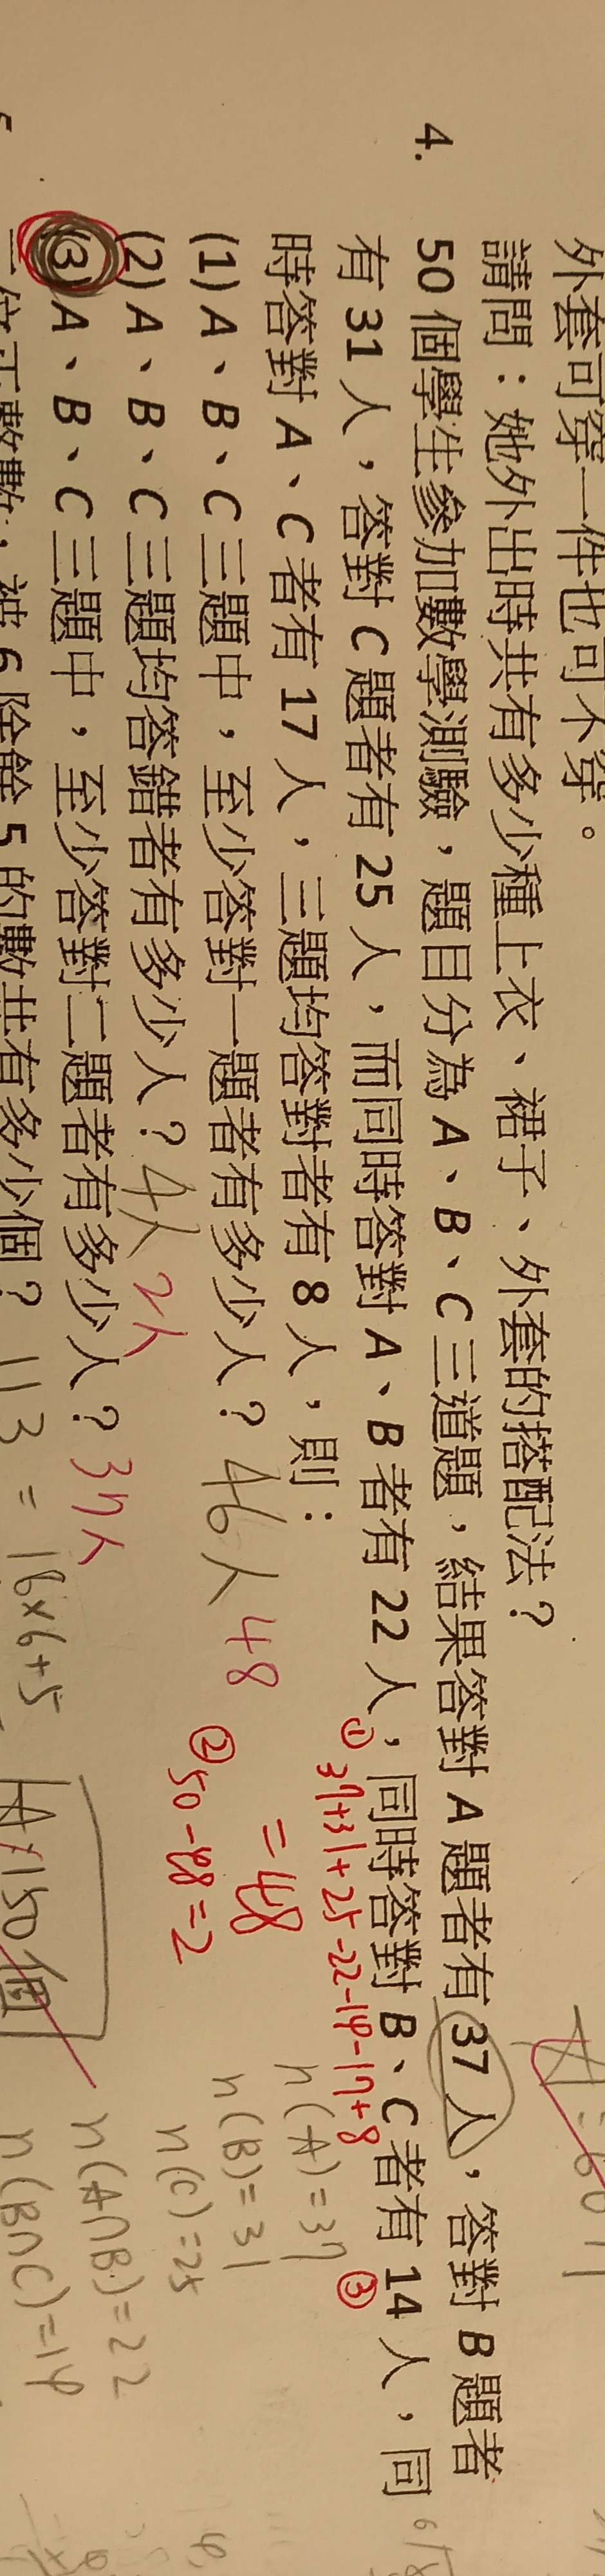 外套可穿一件也可不穿。
請問：她外出時共有多少種上衣、裙子、外套的搭配法？
4. 50 個學生參加數學測驗，題目分為 A、B、C 三道題，結果答對 A 題者有 37 人，答對 B 題者
有 31 人，答對 C 題者有 25 人，而同時答對 A、B 者有 22 人，同時答對 B、C 者有 14 人，同
時答對 A、C 者有 17 人，三題均答對者有 8 人，則：
① 37+31+25-22-14-17+8
=48
③
(1) A、B、C 三題中，至少答對一題者有多少人？ 46人 48
② 50-48=2
(2) A、B、C 三題均答錯者有多少人？ 4人 2人
(3) A、B、C 三題中，至少答對二題者有多少人？ 37人
n(A)=37
n(B)=31
n(C)=25
n(A∩B)=22
n(B∩C)=14
三位正整數，被 6 除餘 5 的數共有多少個？ 113 = 18×6+5
A:150個